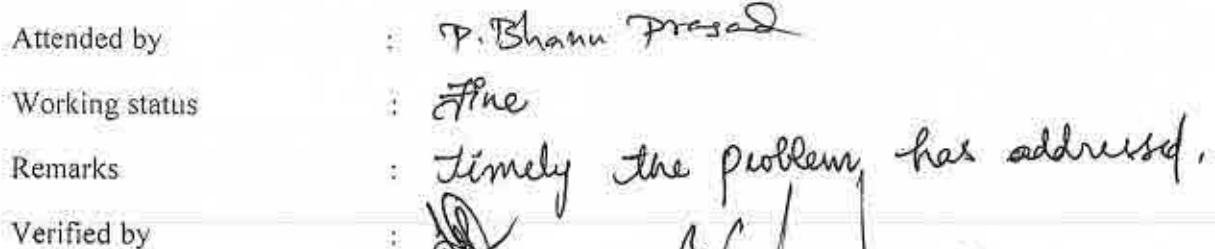 Attended by : P. Bhanu Prasad
Working status : Fine
Remarks : Timely the problem, has addressed.
Verified by :